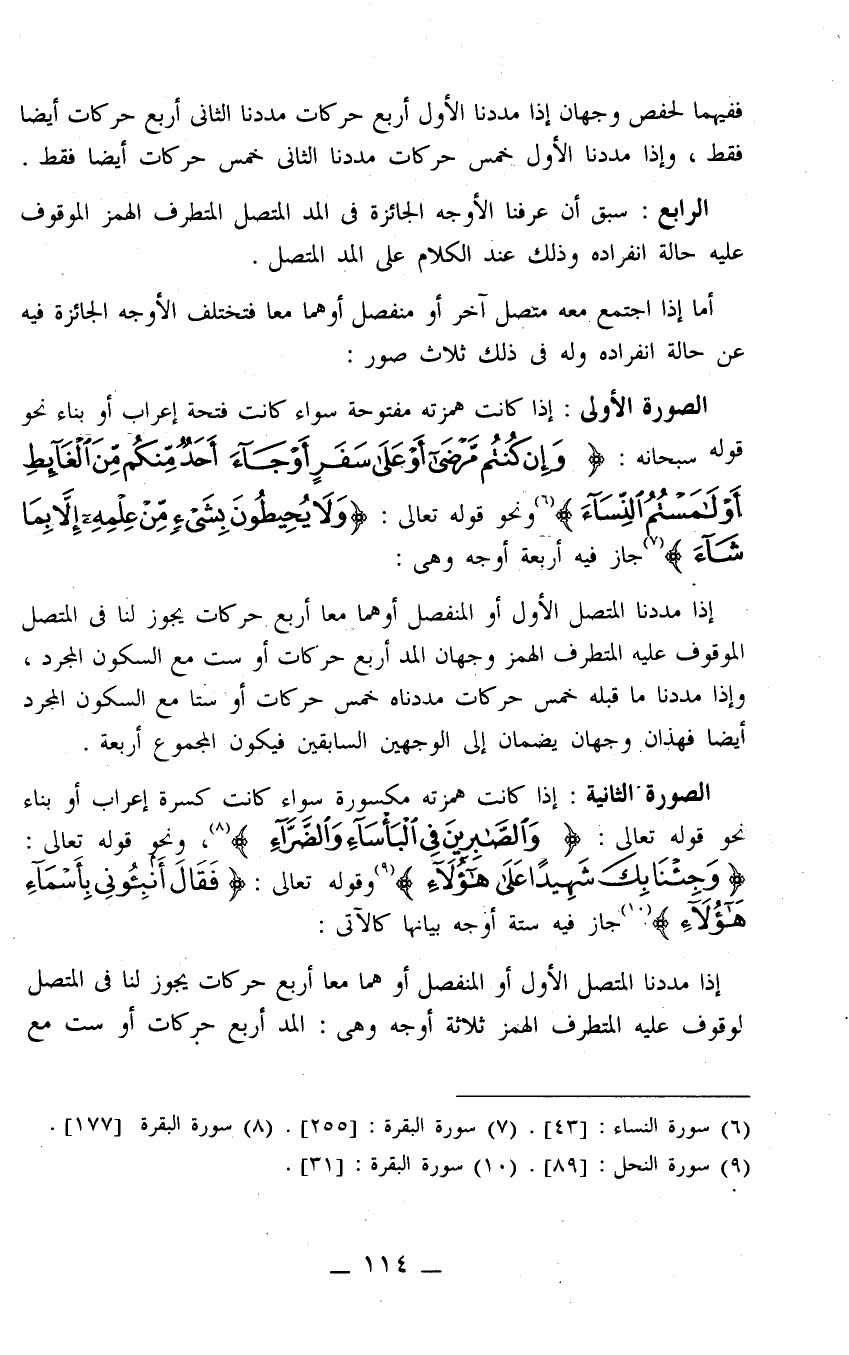 ففيهما لحفص وجهان إذا مددنا الأول أربع حركات مددنا الثانى أربع حركات أيضا
فقط ، وإذا مددنا الأول خمس حركات مددنا الثانى خمس حركات أيضا فقط .
الرابع : سبق أن عرفنا الأوجه الجائزة فى المد المتصل المتطرف الهمز الموقوف
عليه حالة انفراده وذلك عند الكلام على المد المتصل .
أما إذا اجتمع معه متصل آخر أو منفصل أوهما معا فتختلف الأوجه الجائزة فيه
عن حالة انفراده وله فى ذلك ثلاث صور :
الصورة الأولى : إذا كانت همزته مفتوحة سواء كانت فتحة إعراب أو بناء نحو
قوله سبحانه : ﴿ وَإِن كُنتُم مَّرْضَىٰٓ أَوْ عَلَىٰ سَفَرٍ أَوْ جَآءَ أَحَدٌ مِّنكُم مِّنَ ٱلْغَآئِطِ
أَوْ لَٰمَسْتُمُ ٱلنِّسَآءَ ﴾(٦) ونحو قوله تعالى : ﴿ وَلَا يُحِيطُونَ بِشَىْءٍ مِّنْ عِلْمِهِۦٓ إِلَّا بِمَا
شَآءَ ﴾(٧) جاز فيه أربعة أوجه وهى :
إذا مددنا المتصل الأول أو المنفصل أوهما معا أربع حركات يجوز لنا فى المتصل
الموقوف عليه المتطرف الهمز وجهان المد أربع حركات أو ست مع السكون المجرد ،
وإذا مددنا ما قبله خمس حركات مددناه خمس حركات أو ستا مع السكون المجرد
أيضا فهذان وجهان يضمان إلى الوجهين السابقين فيكون المجموع أربعة .
الصورة الثانية : إذا كانت همزته مكسورة سواء كانت كسرة إعراب أو بناء
نحو قوله تعالى : ﴿ وَٱلصَّٰبِرِينَ فِى ٱلْبَأْسَآءِ وَٱلضَّرَّآءِ ﴾(٨)، ونحو قوله تعالى :
﴿ وَجِئْنَا بِكَ شَهِيدًا عَلَىٰ هَٰٓؤُلَآءِ ﴾(٩) وقوله تعالى : ﴿ فَقَالَ أَنۢبِـُٔونِى بِأَسْمَآءِ
هَٰٓؤُلَآءِ ﴾(١٠) جاز فيه ستة أوجه بيانها كالآتى :
إذا مددنا المتصل الأول أو المنفصل أو هما معا أربع حركات يجوز لنا فى المتصل
لوقوف عليه المتطرف الهمز ثلاثة أوجه وهى : المد أربع حركات أو ست مع
(٦) سورة النساء : [٤٣] . (٧) سورة البقرة : [٢٥٥] . (٨) سورة البقرة [١٧٧] .
(٩) سورة النحل : [٨٩] . (١٠) سورة البقرة : [٣١] .
— ١١٤ —